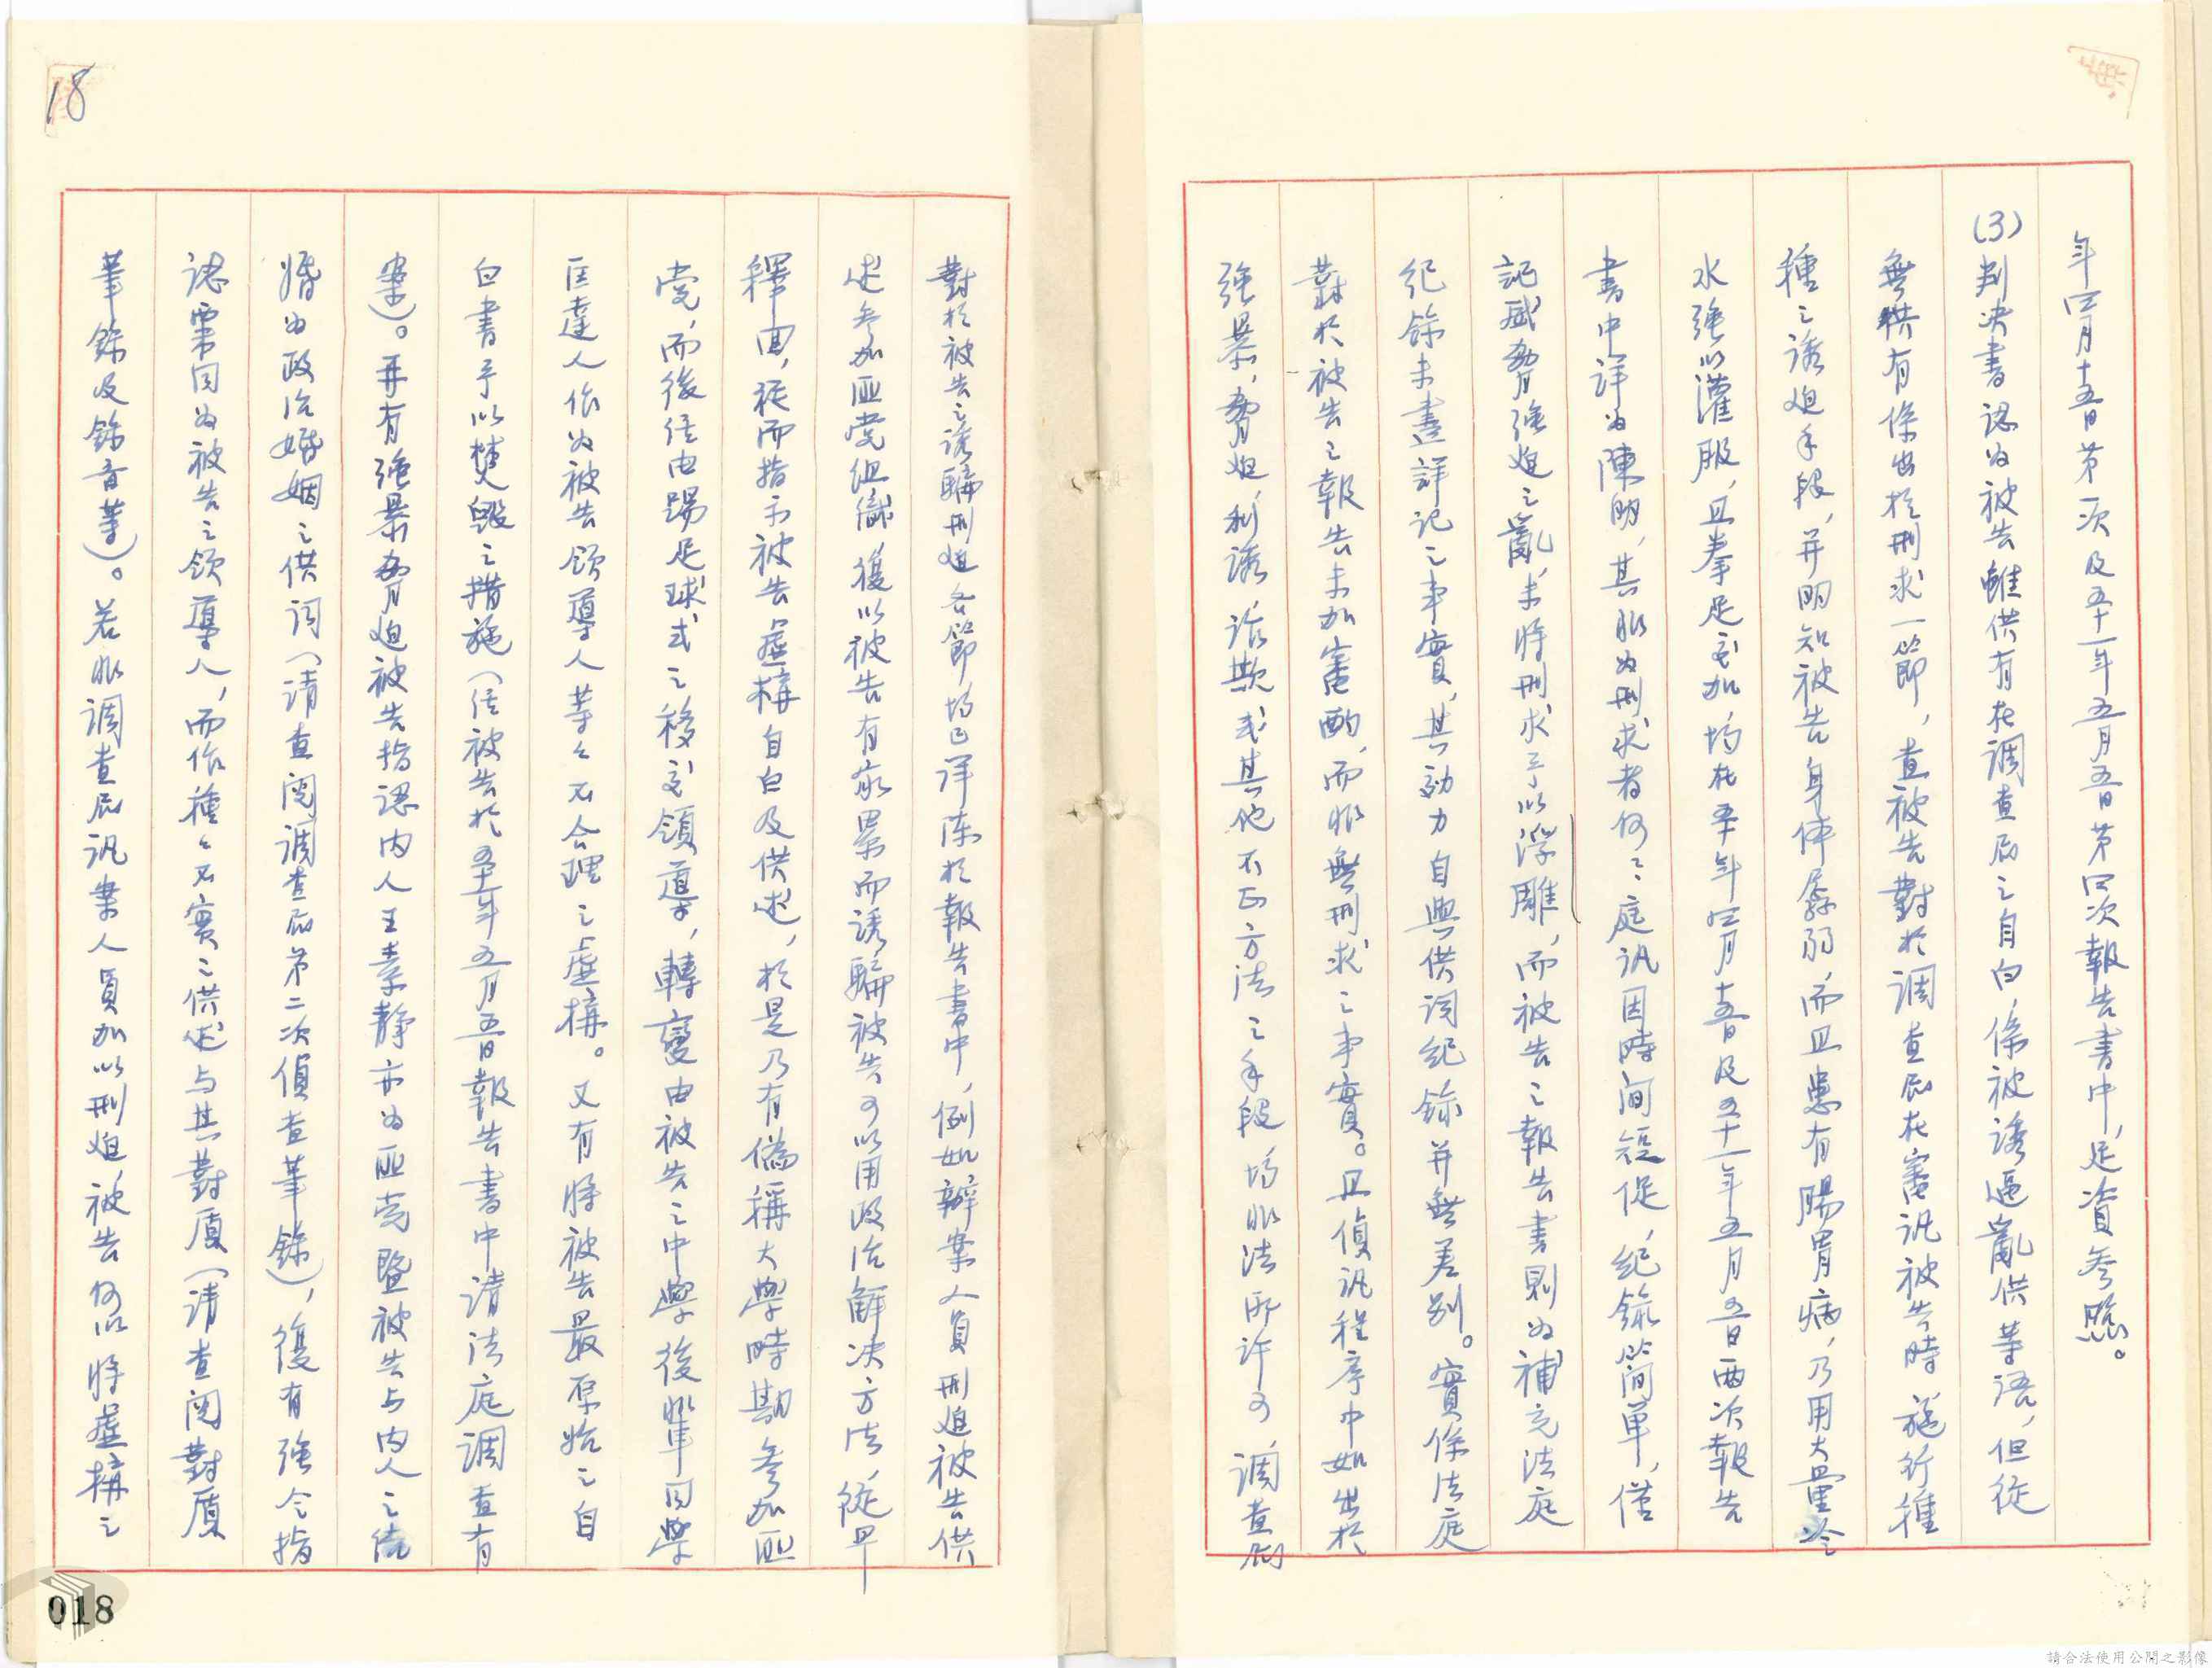 年四月十五日第一次及五十一年五月五日第四次報告書中,足資參照。
(3)判决書認为被告雖供有在調查局之自白,係被誘逼亂供等語,但從
無供有係出於刑求一節,查被告對於調查局在審訊被告時施行種
種之誘迫手段,并明知被告身体孱弱,而且患有腸胃病,乃用大量冷
水強以灌服,且拳足交加,均在五十年四月十五日及五十一年五月五日兩次報告
書中詳为陳明,其非为刑求者何?庭訊因時间短促,紀錄簡单,僅
記威脅強迫之亂,未將刑求予以浮雕,而被告之報告書則为補充法庭
紀錄未盡詳记之事實,其効力自與供词紀錄并無差别。實係法庭
對於被告之報告未加審酌,而非無刑求之事實。且偵訊程序中如出於
強暴,脅迫,利誘,詐欺或其他不正方法之手段,均非法所许可,調查局
對於被告之誘騙刑迫各節,均已详陈於報告書中,例如辦案人員刑迫被告供
述參加匪党组織,復以被告有家累而誘騙被告可以用政治解决方法,從早
釋回,從而指示被告虛構自白及供述,於是乃有偽稱大學時期參加匪
党,而後任由踢足球式之移交領導,轉變由被告之中學後輩同學
匡達人作为被告領導人等々不合理之虛構。又有將被告最原始之自
白書予以焚毀之措施(任被告於五十一年五月五日報告書中请法庭調查有
案)。再有強暴脅迫被告指認内人王素静亦为匪党暨被告与内人之结
婚为政治婚姻之供词(请查阅調查局第二次偵查筆錄),復有強令指
認栗同为被告之領導人,而作種々不實之供述与其對质(请查阅對质
筆錄及錄音等)。若非調查局訊案人員加以刑迫,被告何以將虛構之
18
018
請合法使用公開之影像